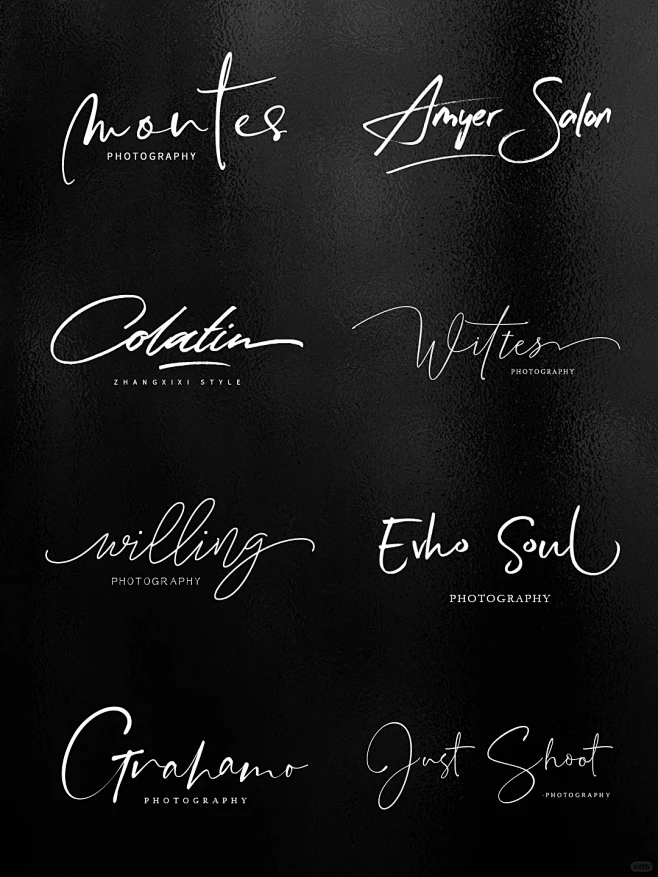 montes
PHOTOGRAPHY
Amyer Salon
Colatin
ZHANGXIXI STYLE
Wittes
PHOTOGRAPHY
willing
PHOTOGRAPHY
Evho Soul
PHOTOGRAPHY
Grahamo
PHOTOGRAPHY
Just Shoot
-PHOTOGRAPHY